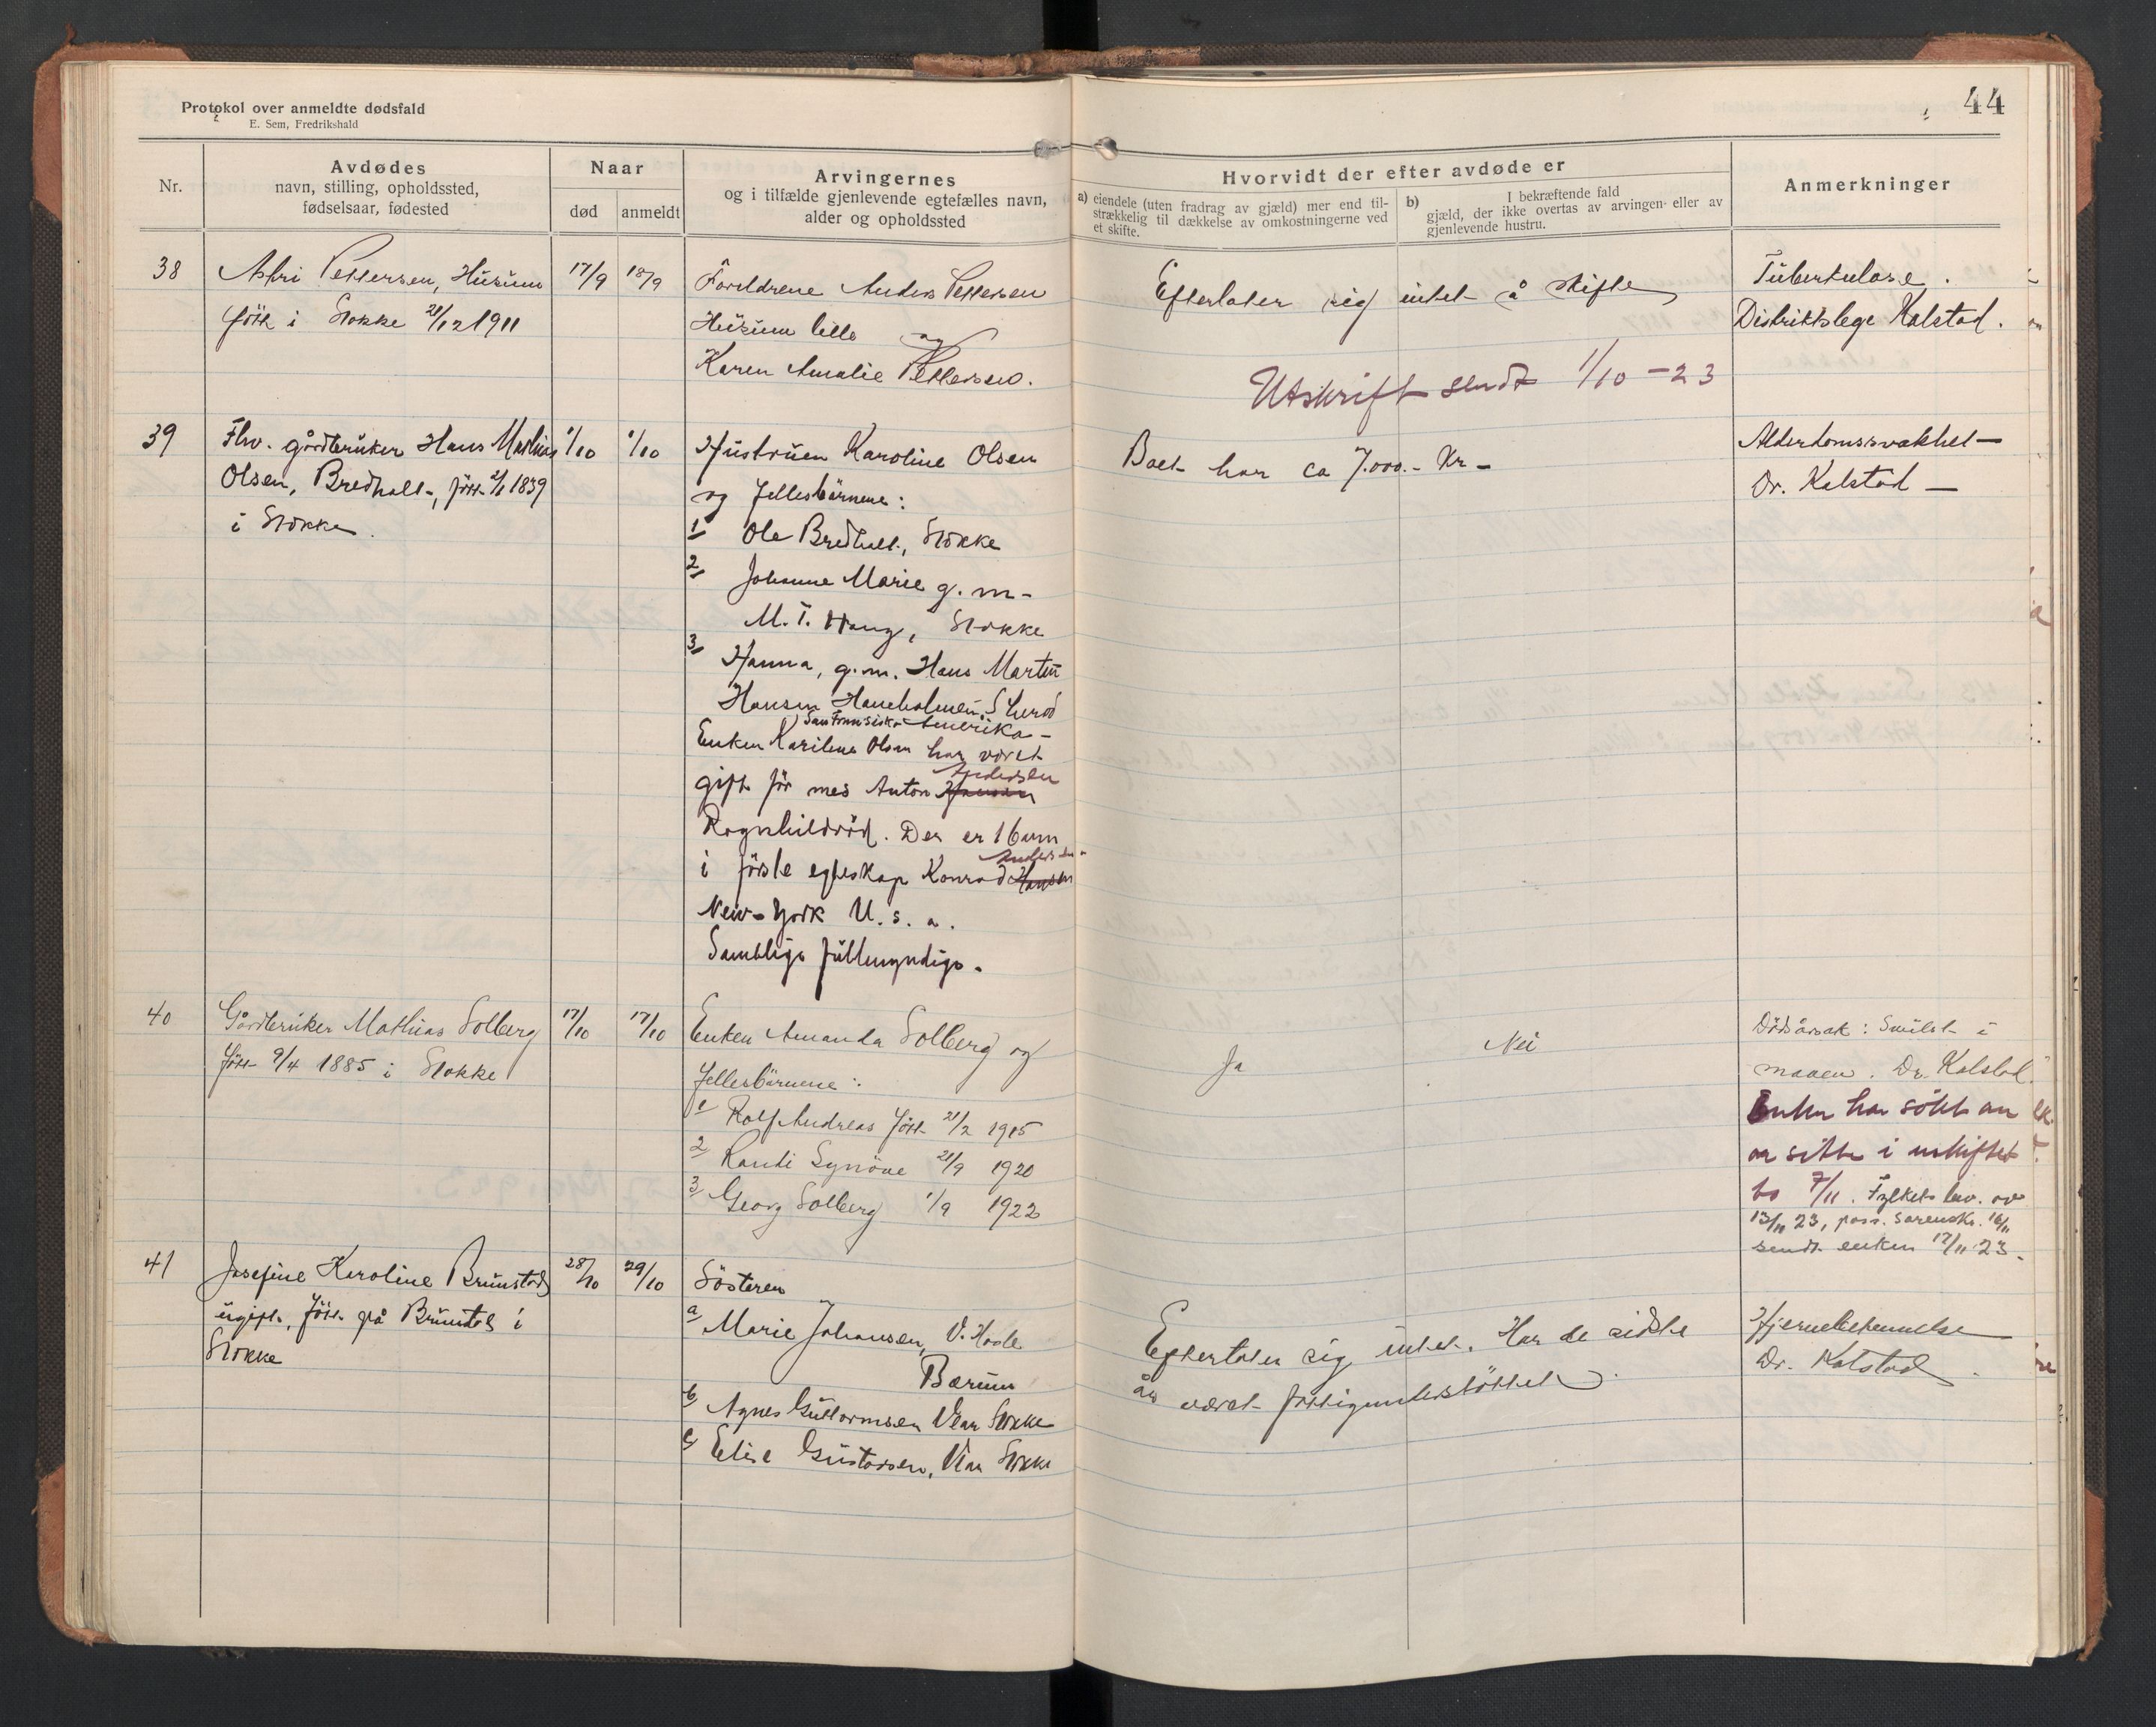 Protokol over anmeldte dødsfald
E. Sem, Fredrikshald
44
Nr.
Avdødes
navn, stilling, opholdssted,
fødselsaar, fødested
Naar
død
anmeldt
Arvingernes
og i tilfælde gjenlevende egtefælles navn,
alder og opholdssted
Hvorvidt der efter avdøde er
a) eiendele (uten fradrag av gjæld) mer end til-
strækkelig til dækkelse av omkostningerne ved
et skifte.
b) I bekræftende fald
gjæld, der ikke overtas av arvingen eller av
gjenlevende hustru.
Anmerkninger
38
Pettersen, Husum
født i Stokke 21/12 1911
17/9
18/9
Foreldrene Anders Pettersen
Husum lille og
Karen Amalie Pettersen.
Efterlater sig intet å skifte
Utskrift sendt 1/10 - 23
Tuberkulose.
Distriktslege Kalstad.
39
Fhv. gårdbruker Hans Mathias
Olsen, Bredholt, født 1839
i Stokke.
1/10
1/10
Hustruen Karoline Olsen
og fellesbärnene:
1 Ole Bredholt, Stokke
2 Johanne Marie g. m.
M. T. Haug, Stokke
3 Hanna, g. m. Hans Martin
Hansen
San Fransisko Amerika -
Enken Olsen har vøret
gift för med Anton Hansen Andersen
Ragnhildröd. Der er 1 barn
i förste egteskap Konrad Hansen Andersen
New-York U. s. a.
Samtlige fullmyndige.
Boet har ca 7.000.- Kr -
Alderdomssvakhet -
Dr. Kalstad -
40
Gårdbruker Mathias Solberg
født 9/4 1885 i Stokke
17/10
17/10
Enken Amanda Solberg og
fellesbärnene:
1 Rolf Andreas født 21/2 1915
2 Randi Synöve 21/9 1920
3 Georg Solberg 1/9 1922
Ja
Nei
Dödsårsak:
maven. Dr. Kalstad.
Enken har sökt om
aa sitte i uskiftet
bo 7/11. Fylkets bev. av
13/11 23, pass. Sorensk. 16/11
sendt enken 17/11 23.
41
Josefine Karoline Brunstad
ugift, født på Brunstad i
Stokke
28/10
29/10
Söstren
a Marie Johansen, V.
Bærum
b Agnes Guttormsen Vear Stokke
c Elise Gustavsen, Vear Stokke
Efterlater sig intet. Har de sidste
år været fattigunderstöttet.
Hjernebetennelse
Dr. Kalstad.